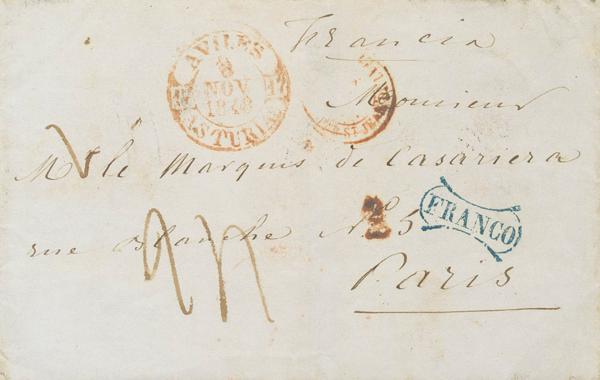 Francia
AVILES
8
NOV
1848
ASTURIAS
ST JEAN
Monsieur
Mr le Marquis de Casariera
rue Blanche No 5
FRANCO
Paris